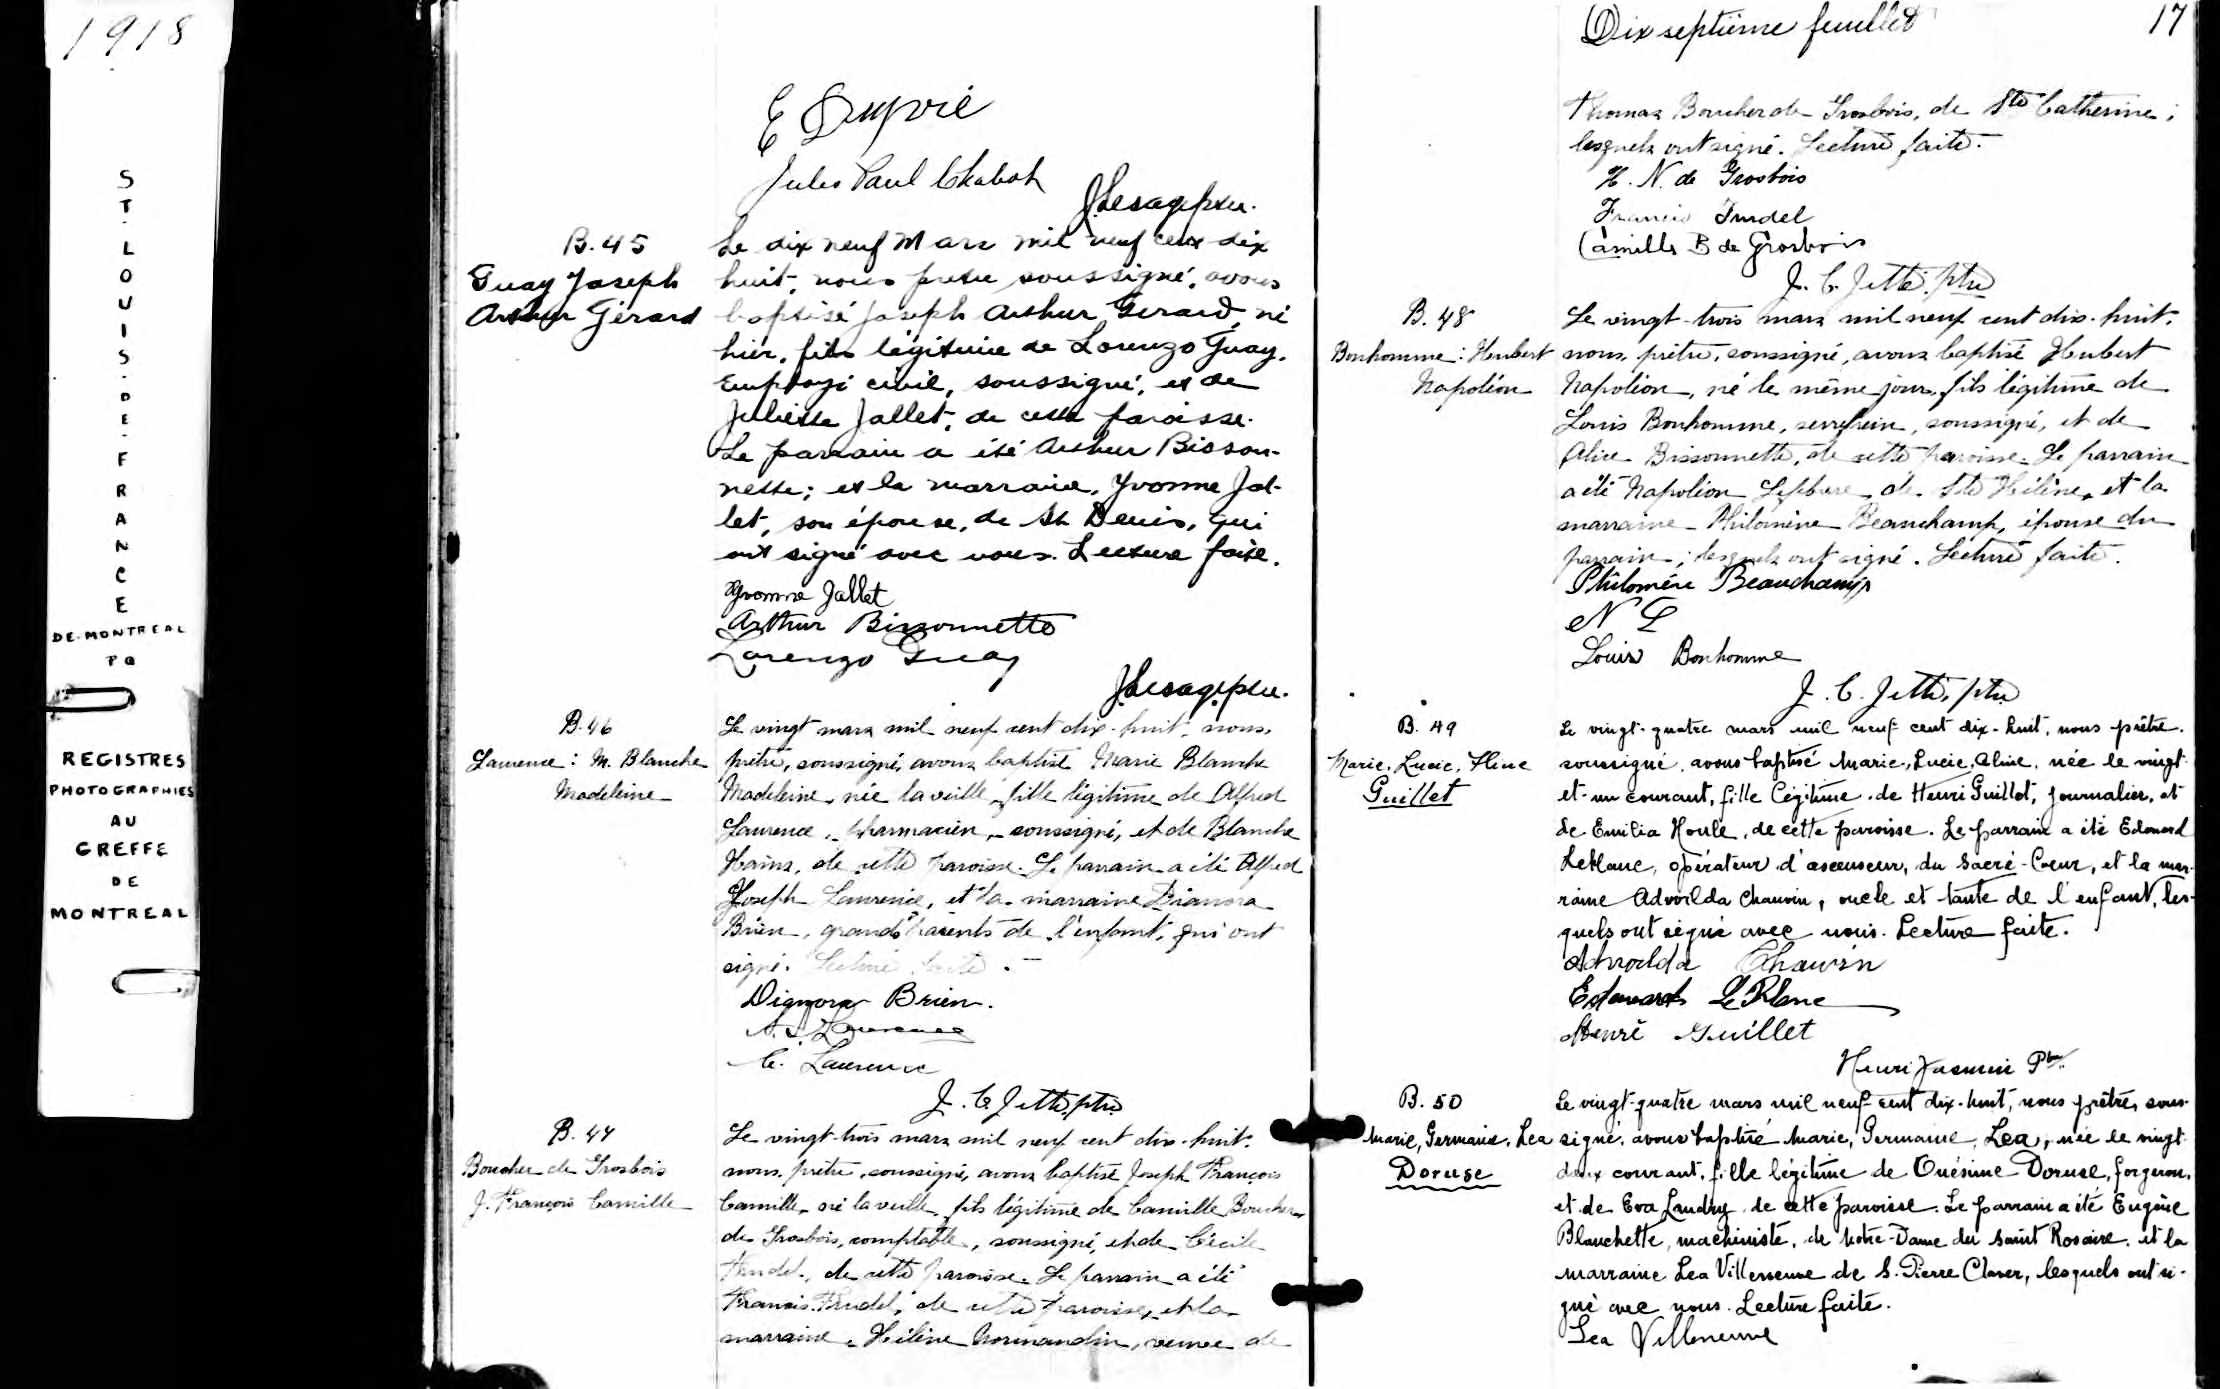 1918
ST. LOUIS-DE-FRANCE
DE-MONTREAL
P Q
REGISTRES
PHOTOGRAPHIES
AU
GREFFE
DE
MONTREAL
E Dupré
Jules Paul Chabot
J. Lesage ptre.
B. 45
Guay Joseph
Arthur Gérard
Le dix neuf Mars mil neuf cent dix
huit, nous pretre soussigné, avons
baptisé Joseph Arthur Gerard, né
hier, fils légitime de Lorenzo Guay,
Employé civil, soussigné, et de
Juliette Jallet, de cette paroisse.
Le parrain a été Arthur Bisson-
nette; et la marraine, Yvonne Jal-
let, son épouse, de St Denis, qui
ont signé avec nous. Lecture faite.
Yvonne Jallet
Arthur Bissonnette
Lorenzo Guay
J. Lesage ptre.
B. 46
Laurence : M. Blanche
Madeleine
Le vingt mars mil neuf cent dix-huit, nous,
prêtre, soussigné, avons baptisé Marie Blanche
Madeleine, née la veille, fille légitime de Alfred
Laurence, pharmacien, soussigné, et de Blanche
Hains, de cette paroisse. Le parrain a été Alfred
Joseph Laurence, et la marraine Dianora
Brien, grands parents de l'enfant, qui ont
signé. Lecture faite.
Dignora Brien.
A. J. Laurence
A. Laurence
J. C. Jetté, ptre
B. 47
Boucher de Grosbois
J. François Camille
Le vingt-trois mars mil neuf cent dix-huit,
nous, prêtre, soussigné, avons baptisé Joseph François
Camille, né la veille, fils légitime de Camille Boucher
de Grosbois, comptable, soussigné, et de Cécile
Trudel, de cette paroisse. Le parrain a été
Francis Trudel, de cette paroisse, et la
marraine, Hélène Normandin, veuve de
Dix septième feuillet 17
Thomas Boucher de Grosbois, de Ste Catherine;
lesquels ont signé. Lecture faite.
H. N. de Grosbois
Francis Trudel
Camille B de Grosbois
J. C. Jetté, ptre
B. 48
Bonhomme : Hubert
Napoléon
Le vingt-trois mars mil neuf cent dix-huit,
nous, prêtre, soussigné, avons baptisé Hubert
Napoléon, né le même jour, fils légitime de
Louis Bonhomme, soussigné, et de
Alice Bissonnette, de cette paroisse. Le parrain
a été Napoléon Lefebvre, de Ste Hélène, et la
marraine Philomène Beauchamp, épouse du
parrain; lesquels ont signé. Lecture faite.
Philomène Beauchamp
N L
Louis Bonhomme
J. C. Jetté, ptre
B. 49
Marie, Lucie, Aline
Guillet
Le vingt-quatre mars mil neuf cent dix-huit, nous prêtre
soussigné, avons baptisé Marie, Lucie, Aline, née le vingt-
et-un courant, fille légitime de Henri Guillet, journalier, et
de Emilia Houle, de cette paroisse. Le parrain a été Edouard
Leblanc, opérateur d'ascenseur, du Sacré-Cœur, et la mar-
raine Advoilda Chauvin, oncle et tante de l'enfant, les-
quels ont signé avec nous. Lecture faite.
Advoilda Chauvin
Edouard LeBlanc
Henri Guillet
Henri Jasmin Ptre
B. 50
Marie, Germaine, Lea
Doruse
Le vingt-quatre mars mil neuf-cent dix-huit, nous prêtre, sous-
signé, avons baptisé Marie, Germaine, Lea, née le vingt-
deux courant, fille légitime de Onésime Doruse, forgeron,
et de Eva Landry, de cette paroisse. Le parrain a été Eugène
Blanchette, machiniste, de Notre-Dame du Saint Rosaire, et la
marraine Lea Villeneuve de S. Pierre Claver, lesquels ont si-
gné avec nous. Lecture faite.
Lea Villeneuve